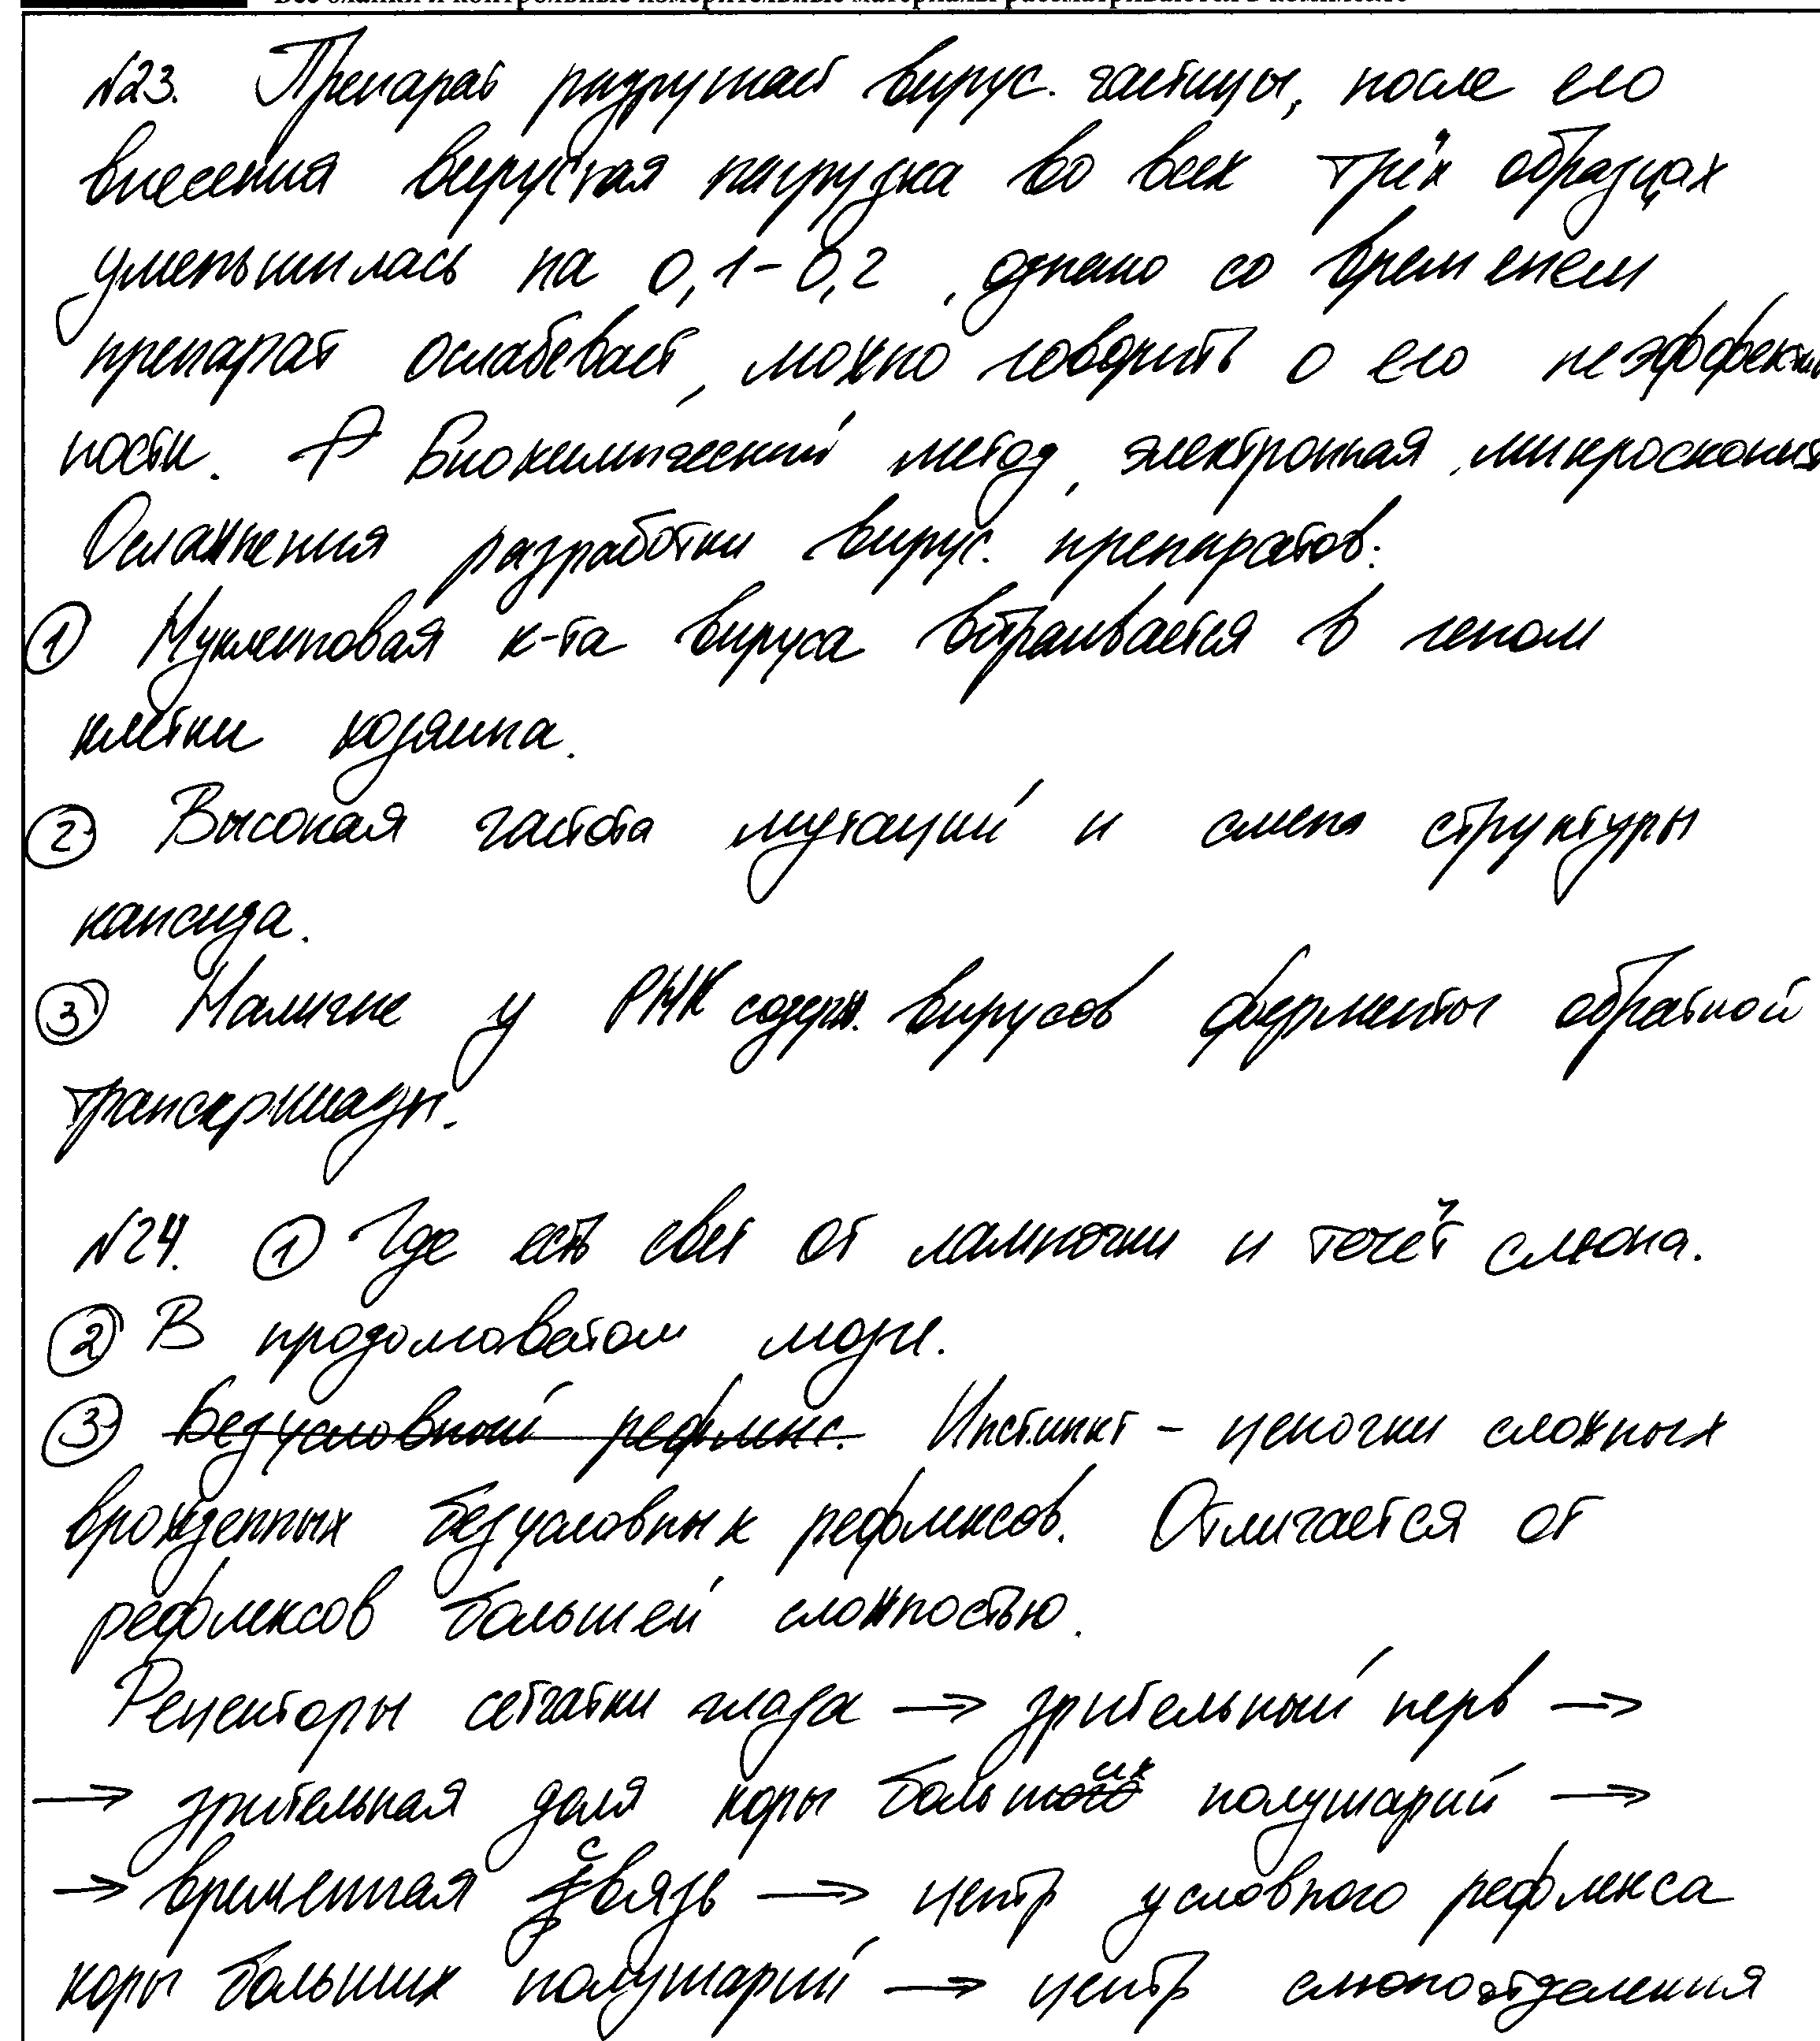 Все бланки и контрольные измерительные материалы рассматриваются в комплекте
№23. Препарат разрушает вирус. частицы, после его
внесения вирусная нагрузка во всех трёх образцах
уменьшилась на 0,1-0,2, однако со временем
препарат ослабевает, можно говорить о его неэффектив
ности. Биохимический метод, электронная микроскопия
Осложнения разработки вирус. препаратов:
① Нуклеиновая к-та вируса встраивается в геном
клетки хозяина.
② Высокая частота мутаций и смена структуры
капсида.
③ Наличие у РНК содерж. вирусов ферменты обратной
транскриптазы.
№24. ① Где есть свет от лампочки и течёт слюна.
② В продолговатом мозге.
③ Безусловный рефлекс. Инстинкт - цепочки сложных
врожденных безусловных рефлексов. Отличается от
рефлексов большей сложностью.
Рецепторы сетчатки глаза → зрительный нерв →
→ зрительная доля коры больших полушарий →
→ временная связь → центр условного рефлекса
коры больших полушарий → центр слюноотделения